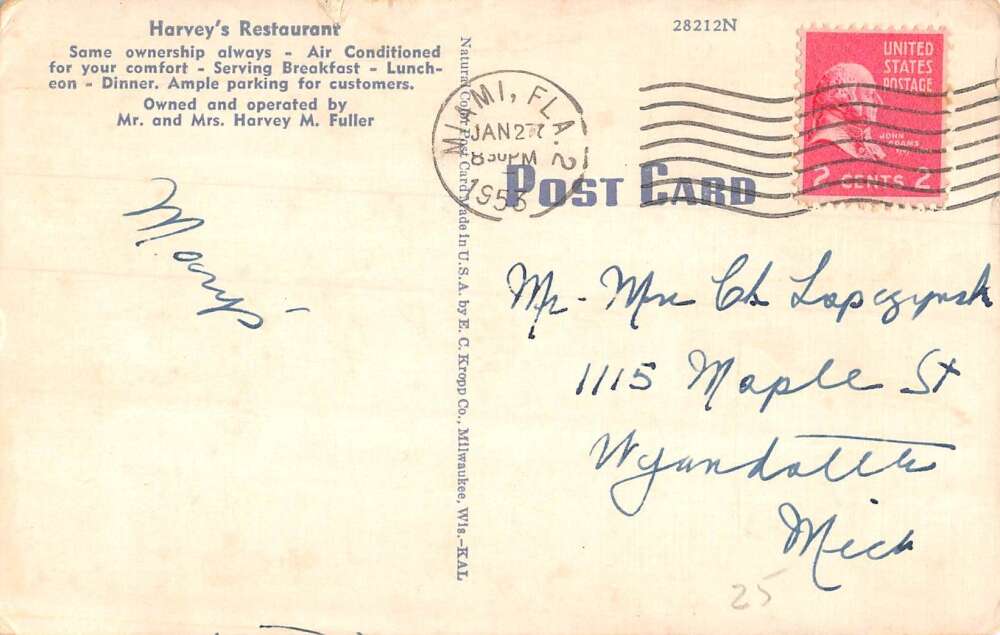 Harvey's Restaurant
Same ownership always - Air Conditioned
for your comfort - Serving Breakfast - Lunch-
eon - Dinner. Ample parking for customers.
Owned and operated by
Mr. and Mrs. Harvey M. Fuller
Mary
Natural Color Post Card Made in U.S.A. by E. C. Kropp Co., Milwaukee, Wis.-KAL
28212N
MIAMI, FLA. 2
JAN 27
8 30 PM
1953
UNITED
STATES
POSTAGE
JOHN
ADAMS
2 CENTS 2
POST CARD
Mr - Mrs Ch Lopczynski
1115 Maple St
Wyandotte
Mich
25